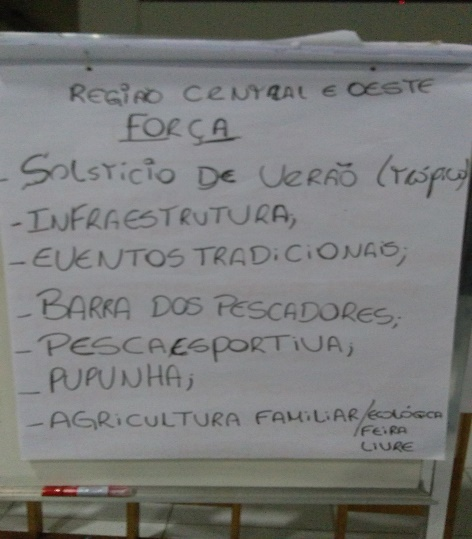 REGIÃO CENTRAL E OESTE
FORÇA
- SOLSTICIO DE VERÃO (TRÓPICO)
- INFRAESTRUTURA;
- EVENTOS TRADICIONAIS;
- BARRA DOS PESCADORES;
- PESCA ESPORTIVA;
- PUPUNHA;
- AGRICULTURA FAMILIAR/ECOLÓGICA
FEIRA
LIVRE